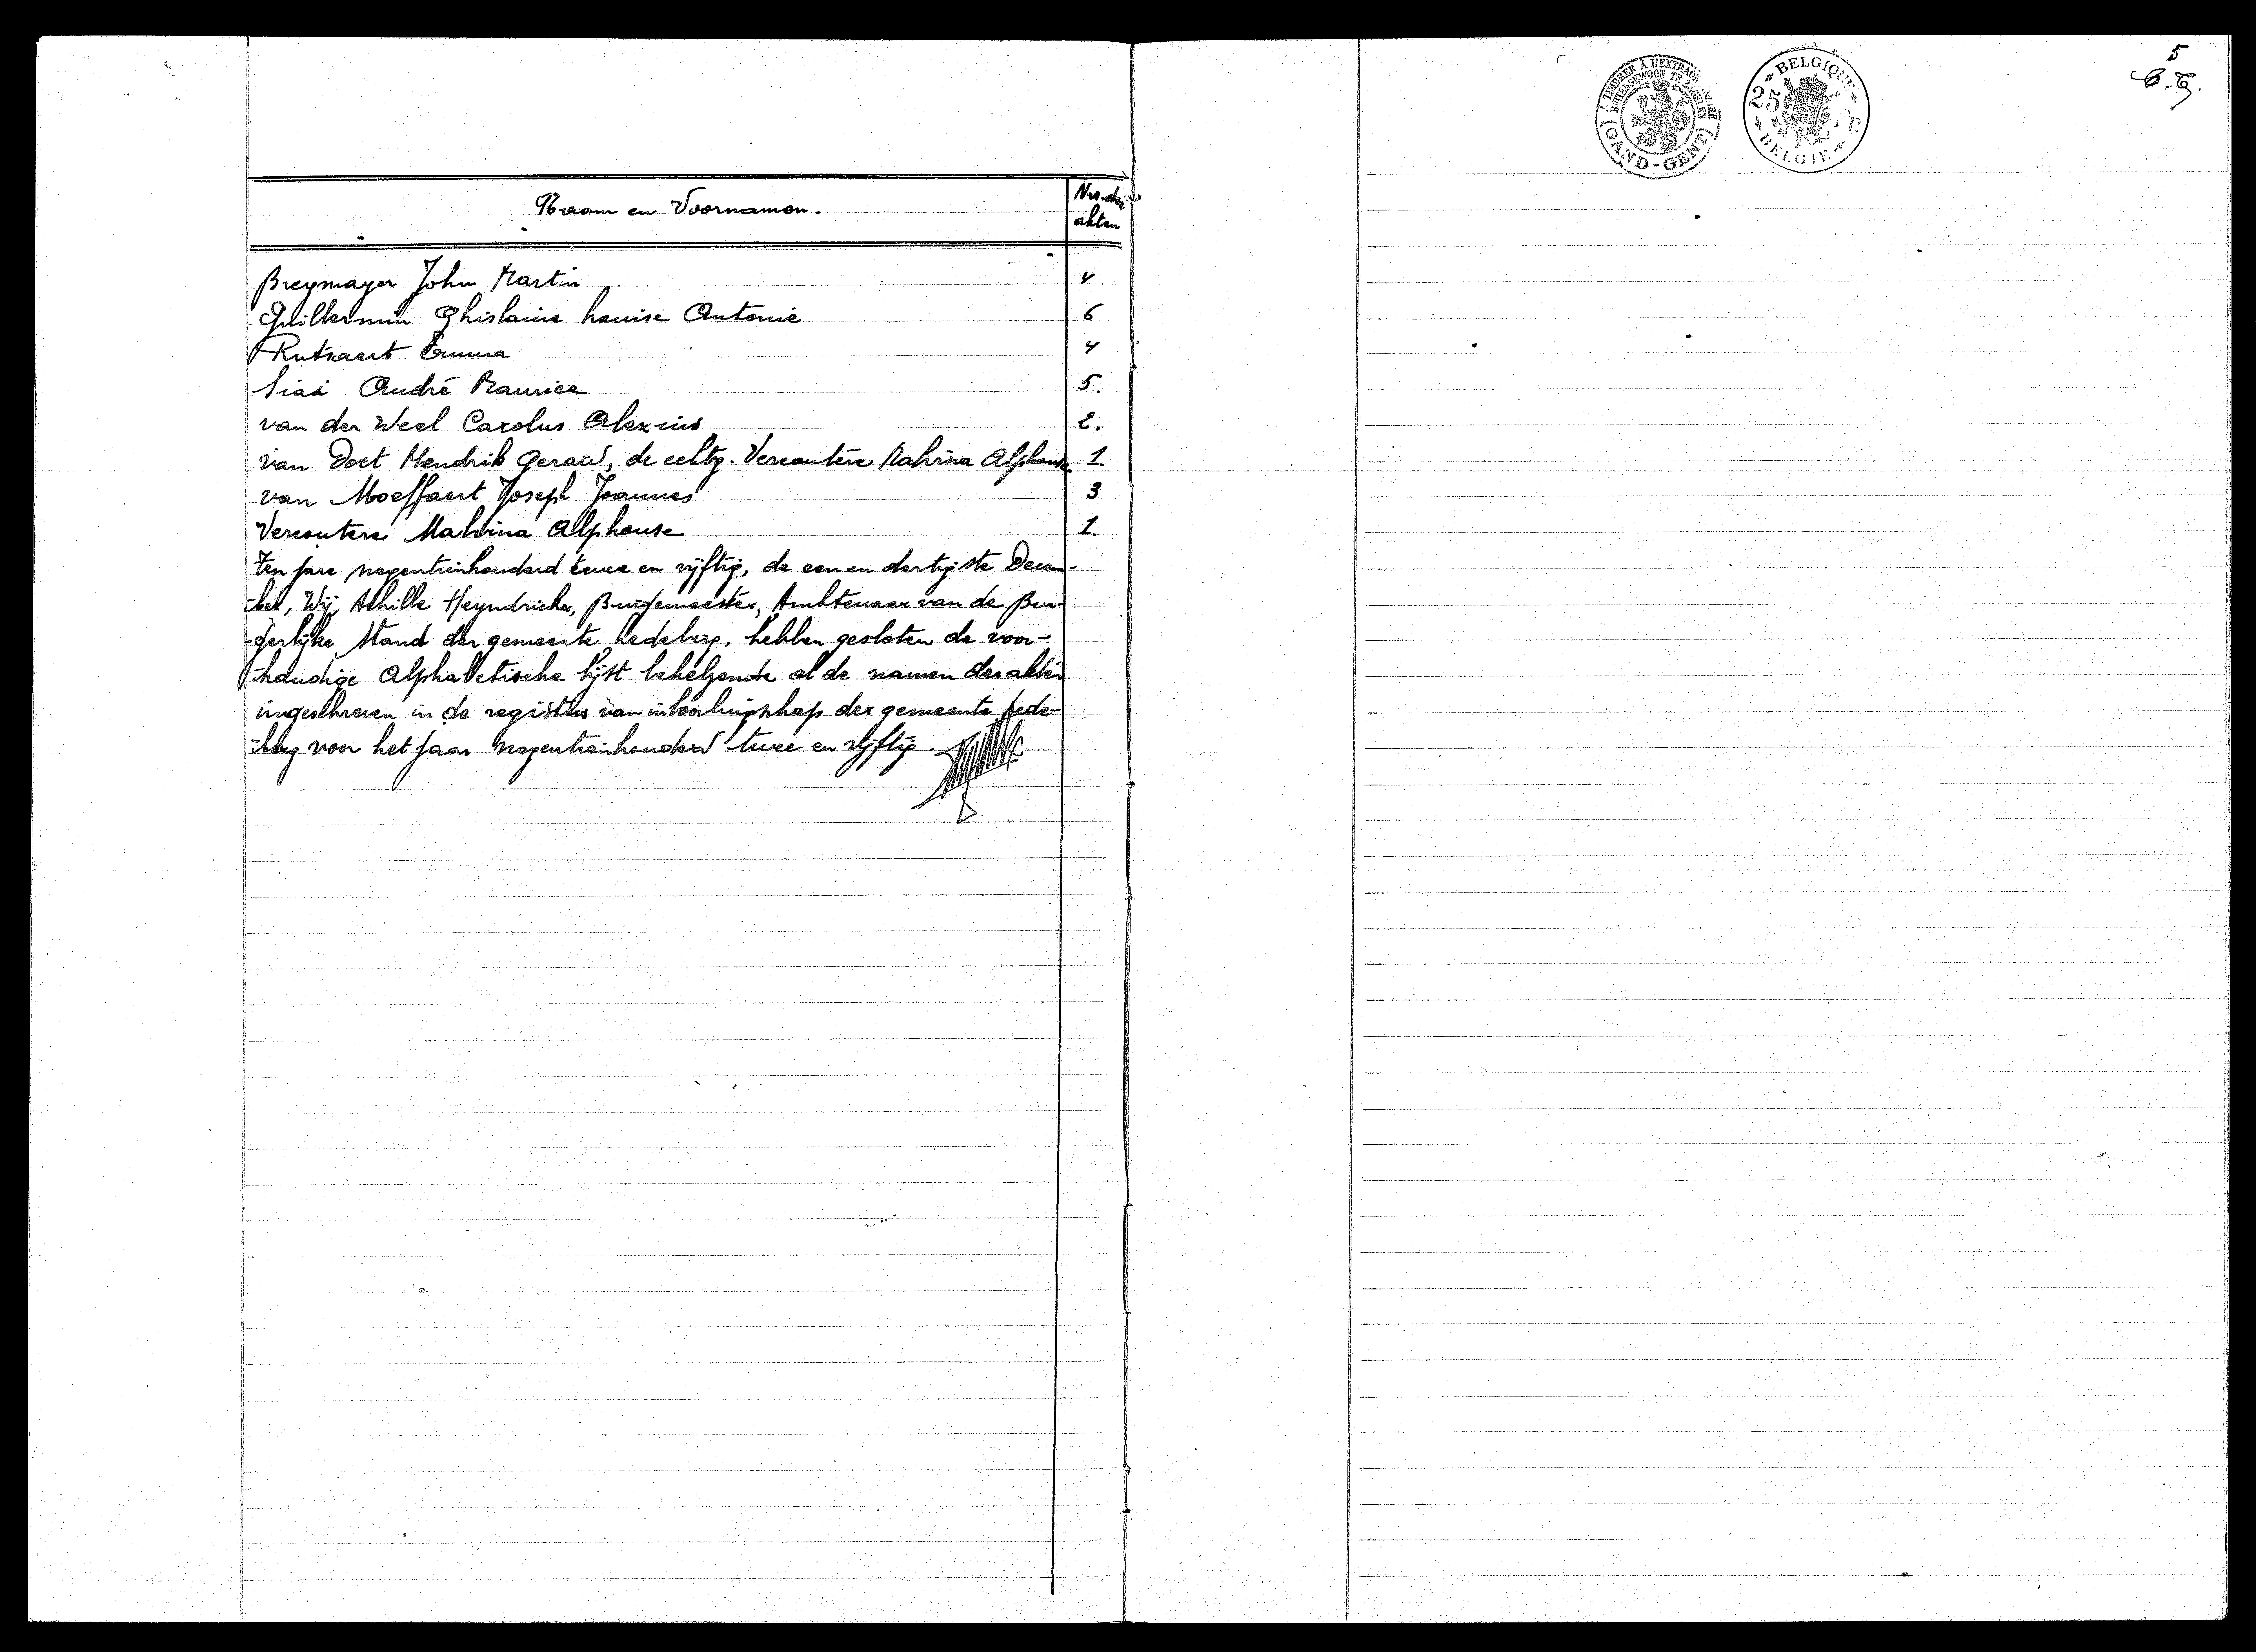 Naam en Voornamen.
Nrs. der
akten
Breymayer John Martin 4
Guillermin Ghislaine Louise Antonie 6
Rutsaert Emma 4
Sias André Maurice 5.
van der Weel Carolus Alexius 2.
van Dort Hendrik Gerard, de echtg. Vercoutere Malvina Alphonse 1.
van Moeffaert Joseph Joannes 3
Vercoutere Malvina Alphonse 1.
Ten jare negentienhonderd twee en vijftig, de een en dertigste Decem-
-ber, Wij, Achille Heyndrickx, Burgemeester, Ambtenaar van de Bur-
-gerlijke Stand der gemeente Ledeberg, hebben gesloten de voor-
-handige Alphabetische lijst behelzende al de namen der akten
ingeschreven in de registers van inboorlingschap der gemeente Lede-
-berg voor het jaar negentienhonderd twee en vijftig.
À TIMBRER À L'EXTRAOR
BUITENGEWOON TE ZEGELEN
GAND-GENT
BELGIQUE
25 F.
BELGIE
5